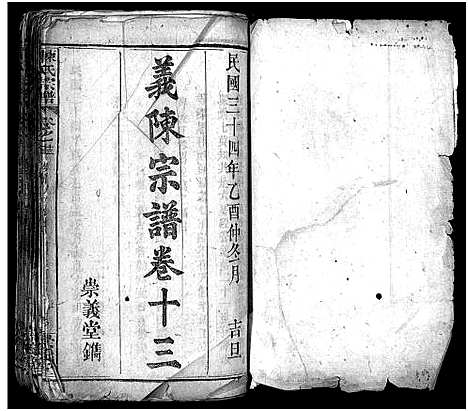 民國三十四年乙酉仲冬月 吉旦
義陳宗譜卷十三
崇義堂鐫
陳氏宗譜